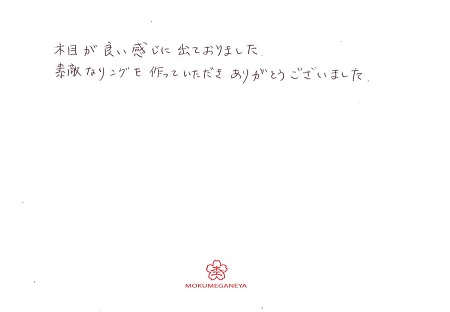 木目が良い感じに出ておりました.
素敵なリングを作っていただきありがとうございました.
杢
MOKUMEGANEYA